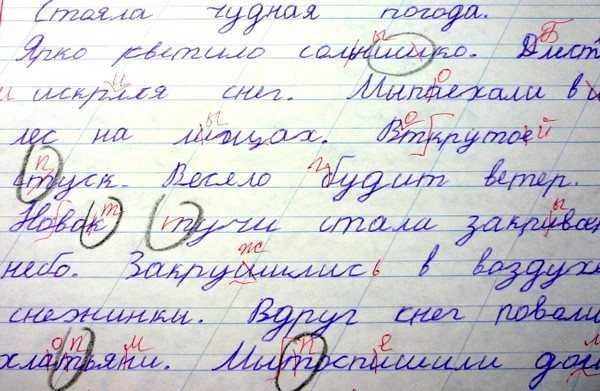 Стояла чудная погода.
Ярко кветило солншико. Дист
и искрлкя снег. Мыпаехали в
лес на лищах. Вткрутоей
стуск. Весело будит ветер.
Новак тучи стали закриван
небо. Закрушились в воздухе
снежинки. Вдруг снег повали
хлатьяни. Мытоспишили дом